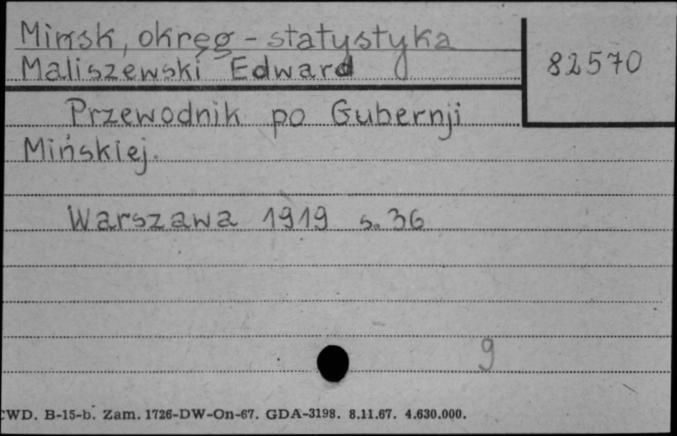 Mińsk, okręg - statystyka
Maliszewski Edward
82570
Przewodnik po Gubernji
Mińskiej.
Warszawa 1919 s. 36
9
CWD. B-15-b. Zam. 1726-DW-On-67. GDA-3198. 8.11.67. 4.630.000.